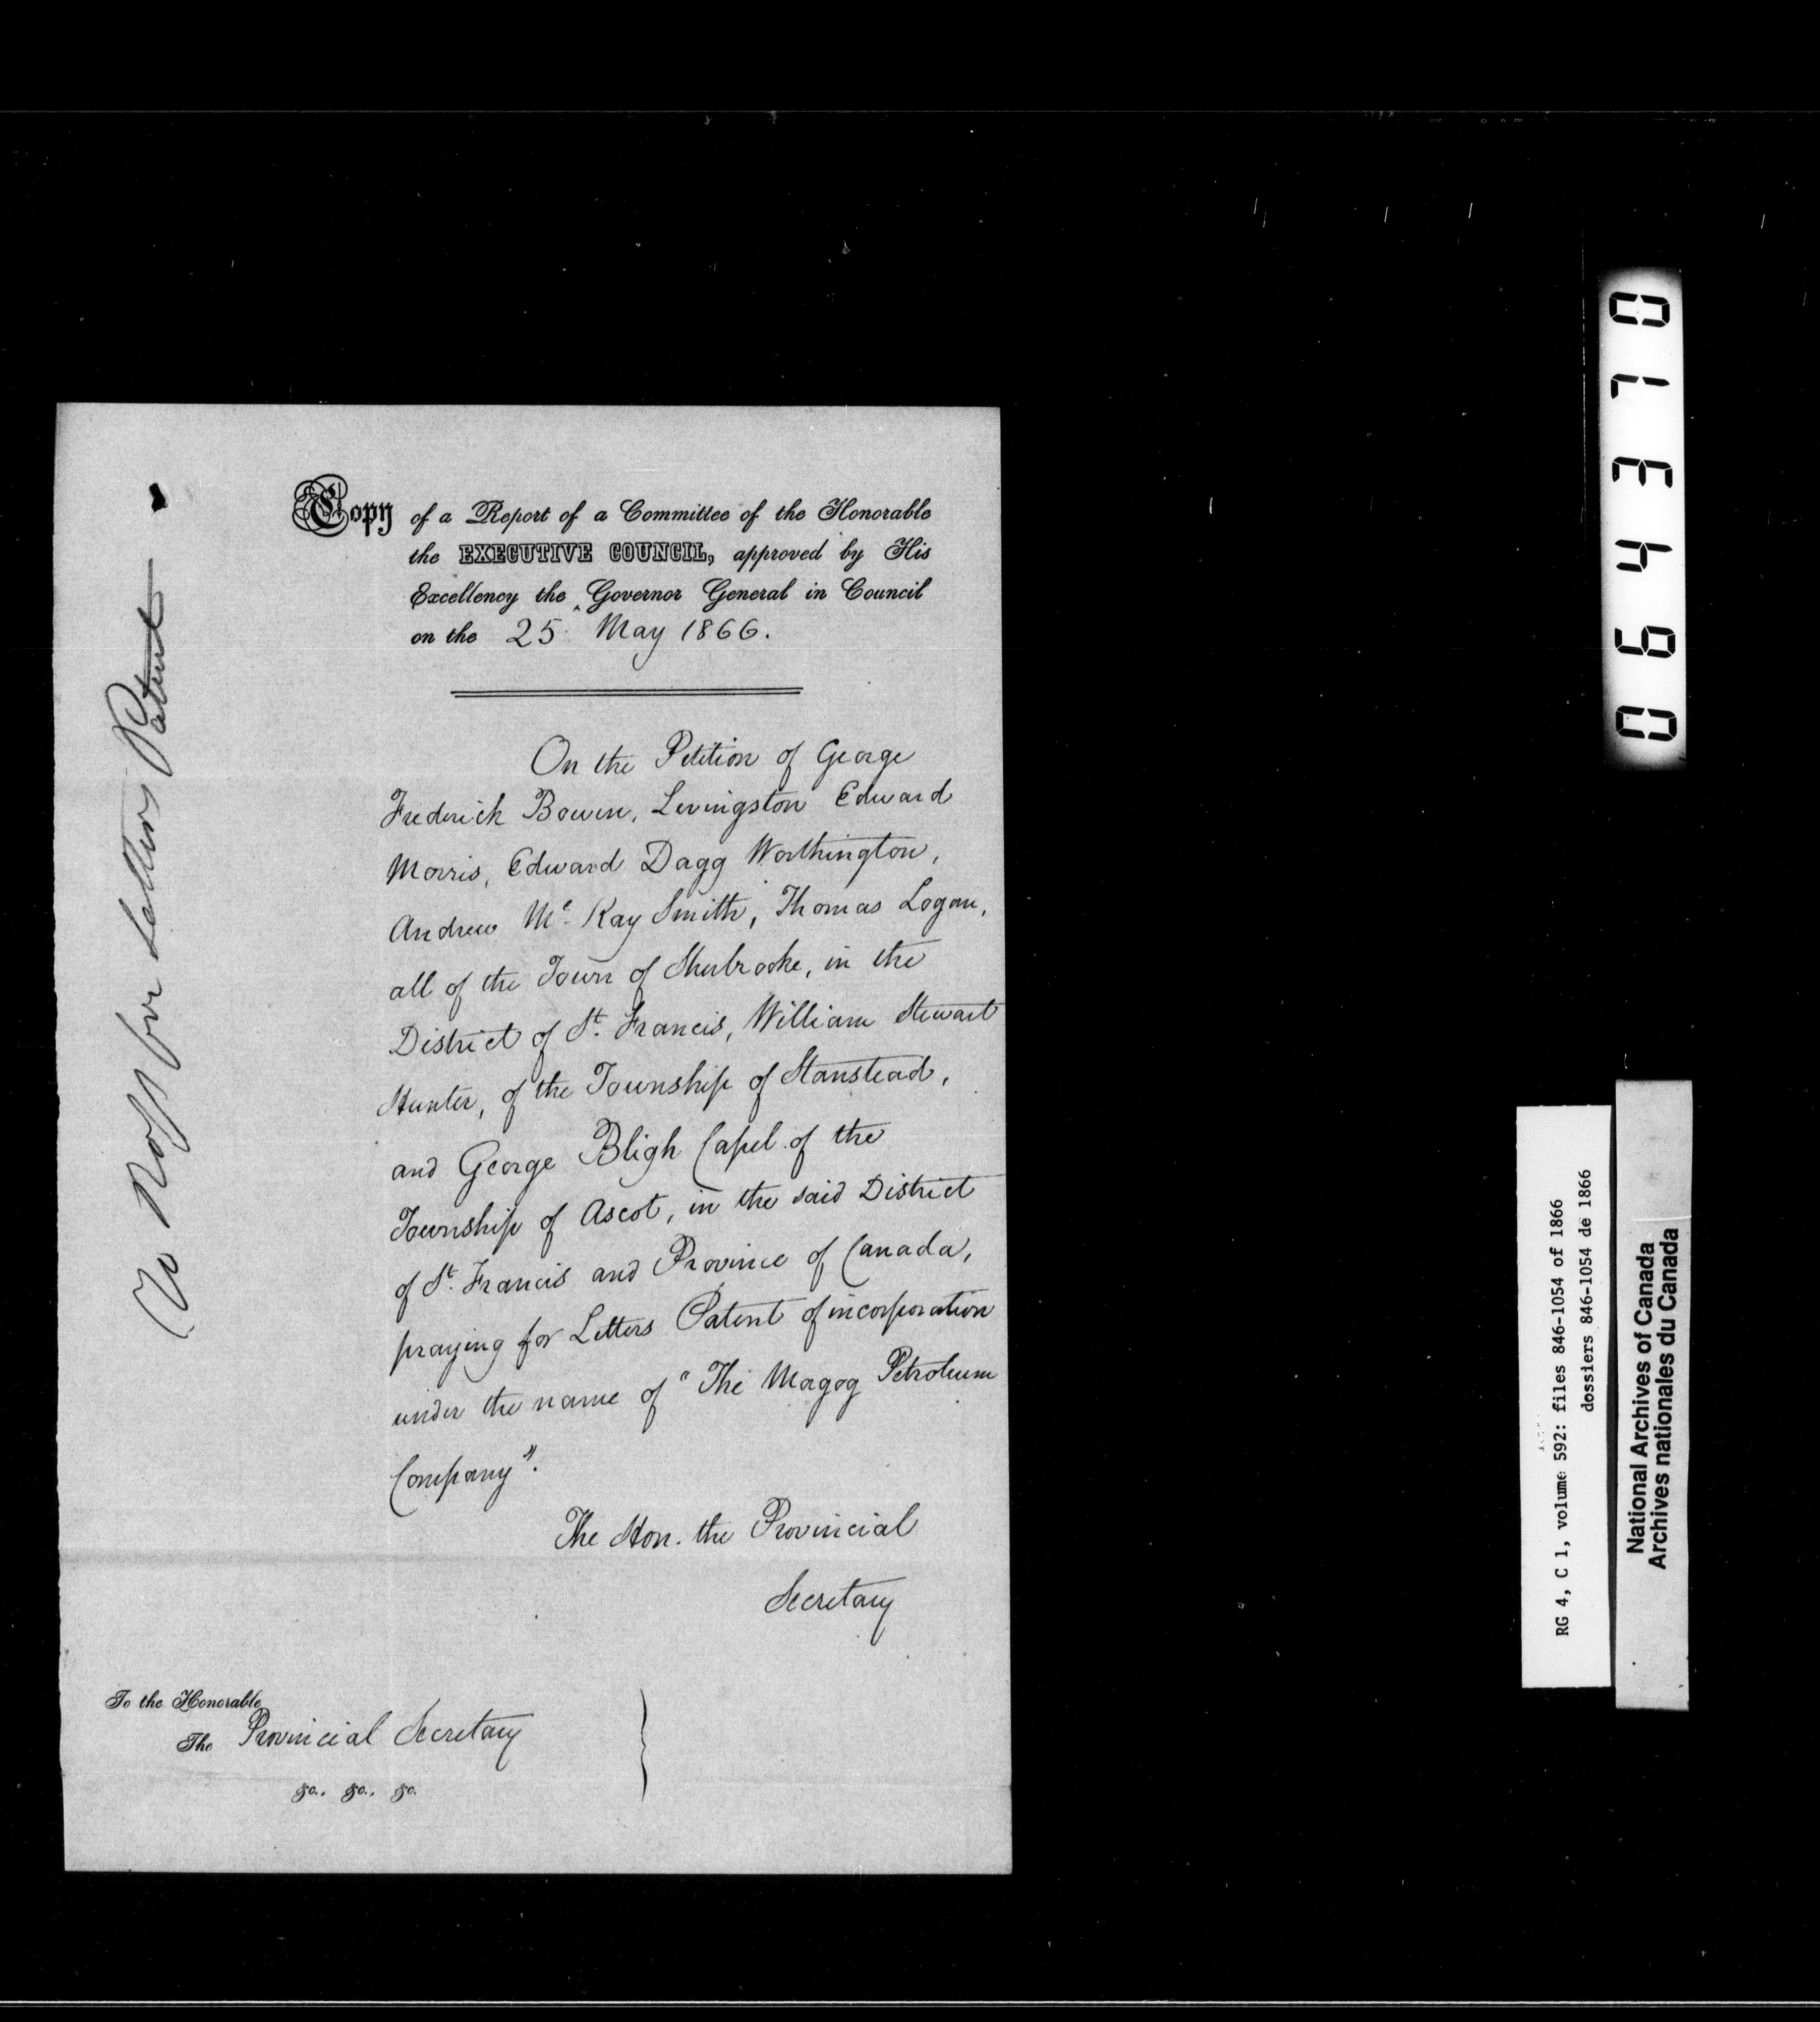 Copy of a Report of a Committee of the Honorable
the EXECUTIVE COUNCIL, approved by His
Excellency the Governor General in Council
on the 25 May 1866.
On the Petition of George
Frederick Bowen, Levingston Edward
Morris, Edward Dagg Worthington,
Andrew Mc Kay Smith, Thomas Logan,
all of the Town of Sherbrooke, in the
District of St. Francis, William Stewart
Hunter, of the Township of Stanstead,
and George Bligh Capel of the
Township of Ascot, in the said District
of St. Francis and Province of Canada,
praying for Letters Patent of incorporation
under the name of "The Magog Petroleum
Company".
The Hon. the Provincial
Secretary
To the Honorable
The Provincial Secretary
&c., &c., &c.
To Ross for Letters Patent
064370
RG 4, C 1, volume 592: files 846-1054 of 1866
dossiers 846-1054 de 1866
National Archives of Canada
Archives nationales du Canada